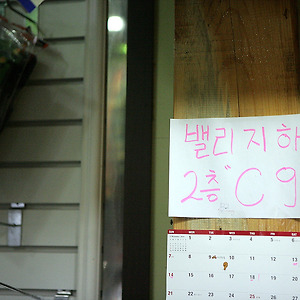 밸리지하
2층" C9
SUN MON TUE WED THU FRI SAT
1 2 3 4 5 6
7 8 9 10 11 12 13
14 15 16 17 18 19 20
21 22 23 24 25 26 27